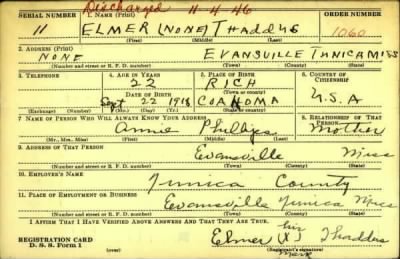 Discharged 11-4-46
SERIAL NUMBER 1. NAME (Print) ORDER NUMBER
11 ELMER (NONE) THADDUS 1060
(First) (Middle) (Last)
2. ADDRESS (Print)
NONE EVANSVILLE TUNICA MISS
(Number and street or R. F. D. number) (Town) (County) (State)
3. TELEPHONE 4. AGE IN YEARS 5. PLACE OF BIRTH 6. COUNTRY OF CITIZENSHIP
22 RICH
(Town or county)
DATE OF BIRTH
Sept 22 1918 COAHOMA U.S.A
(Exchange) (Number) (Mo.) (Day) (Yr.) (State or country)
7. NAME OF PERSON WHO WILL ALWAYS KNOW YOUR ADDRESS 8. RELATIONSHIP OF THAT PERSON
Annie Phillips Mother
(Mr., Mrs., Miss) (First) (Middle) (Last)
9. ADDRESS OF THAT PERSON
Evansville Miss
(Number and street or R. F. D. number) (Town) (County) (State)
10. EMPLOYER'S NAME
Tunica County
11. PLACE OF EMPLOYMENT OR BUSINESS
Evansville Tunica Miss
(Number and street or R. F. D. number) (Town) (County) (State)
I AFFIRM THAT I HAVE VERIFIED ABOVE ANSWERS AND THAT THEY ARE TRUE.
his
REGISTRATION CARD Elmer (X) Thaddus
D. S. S. Form 1 (Registrant's signature)
mark